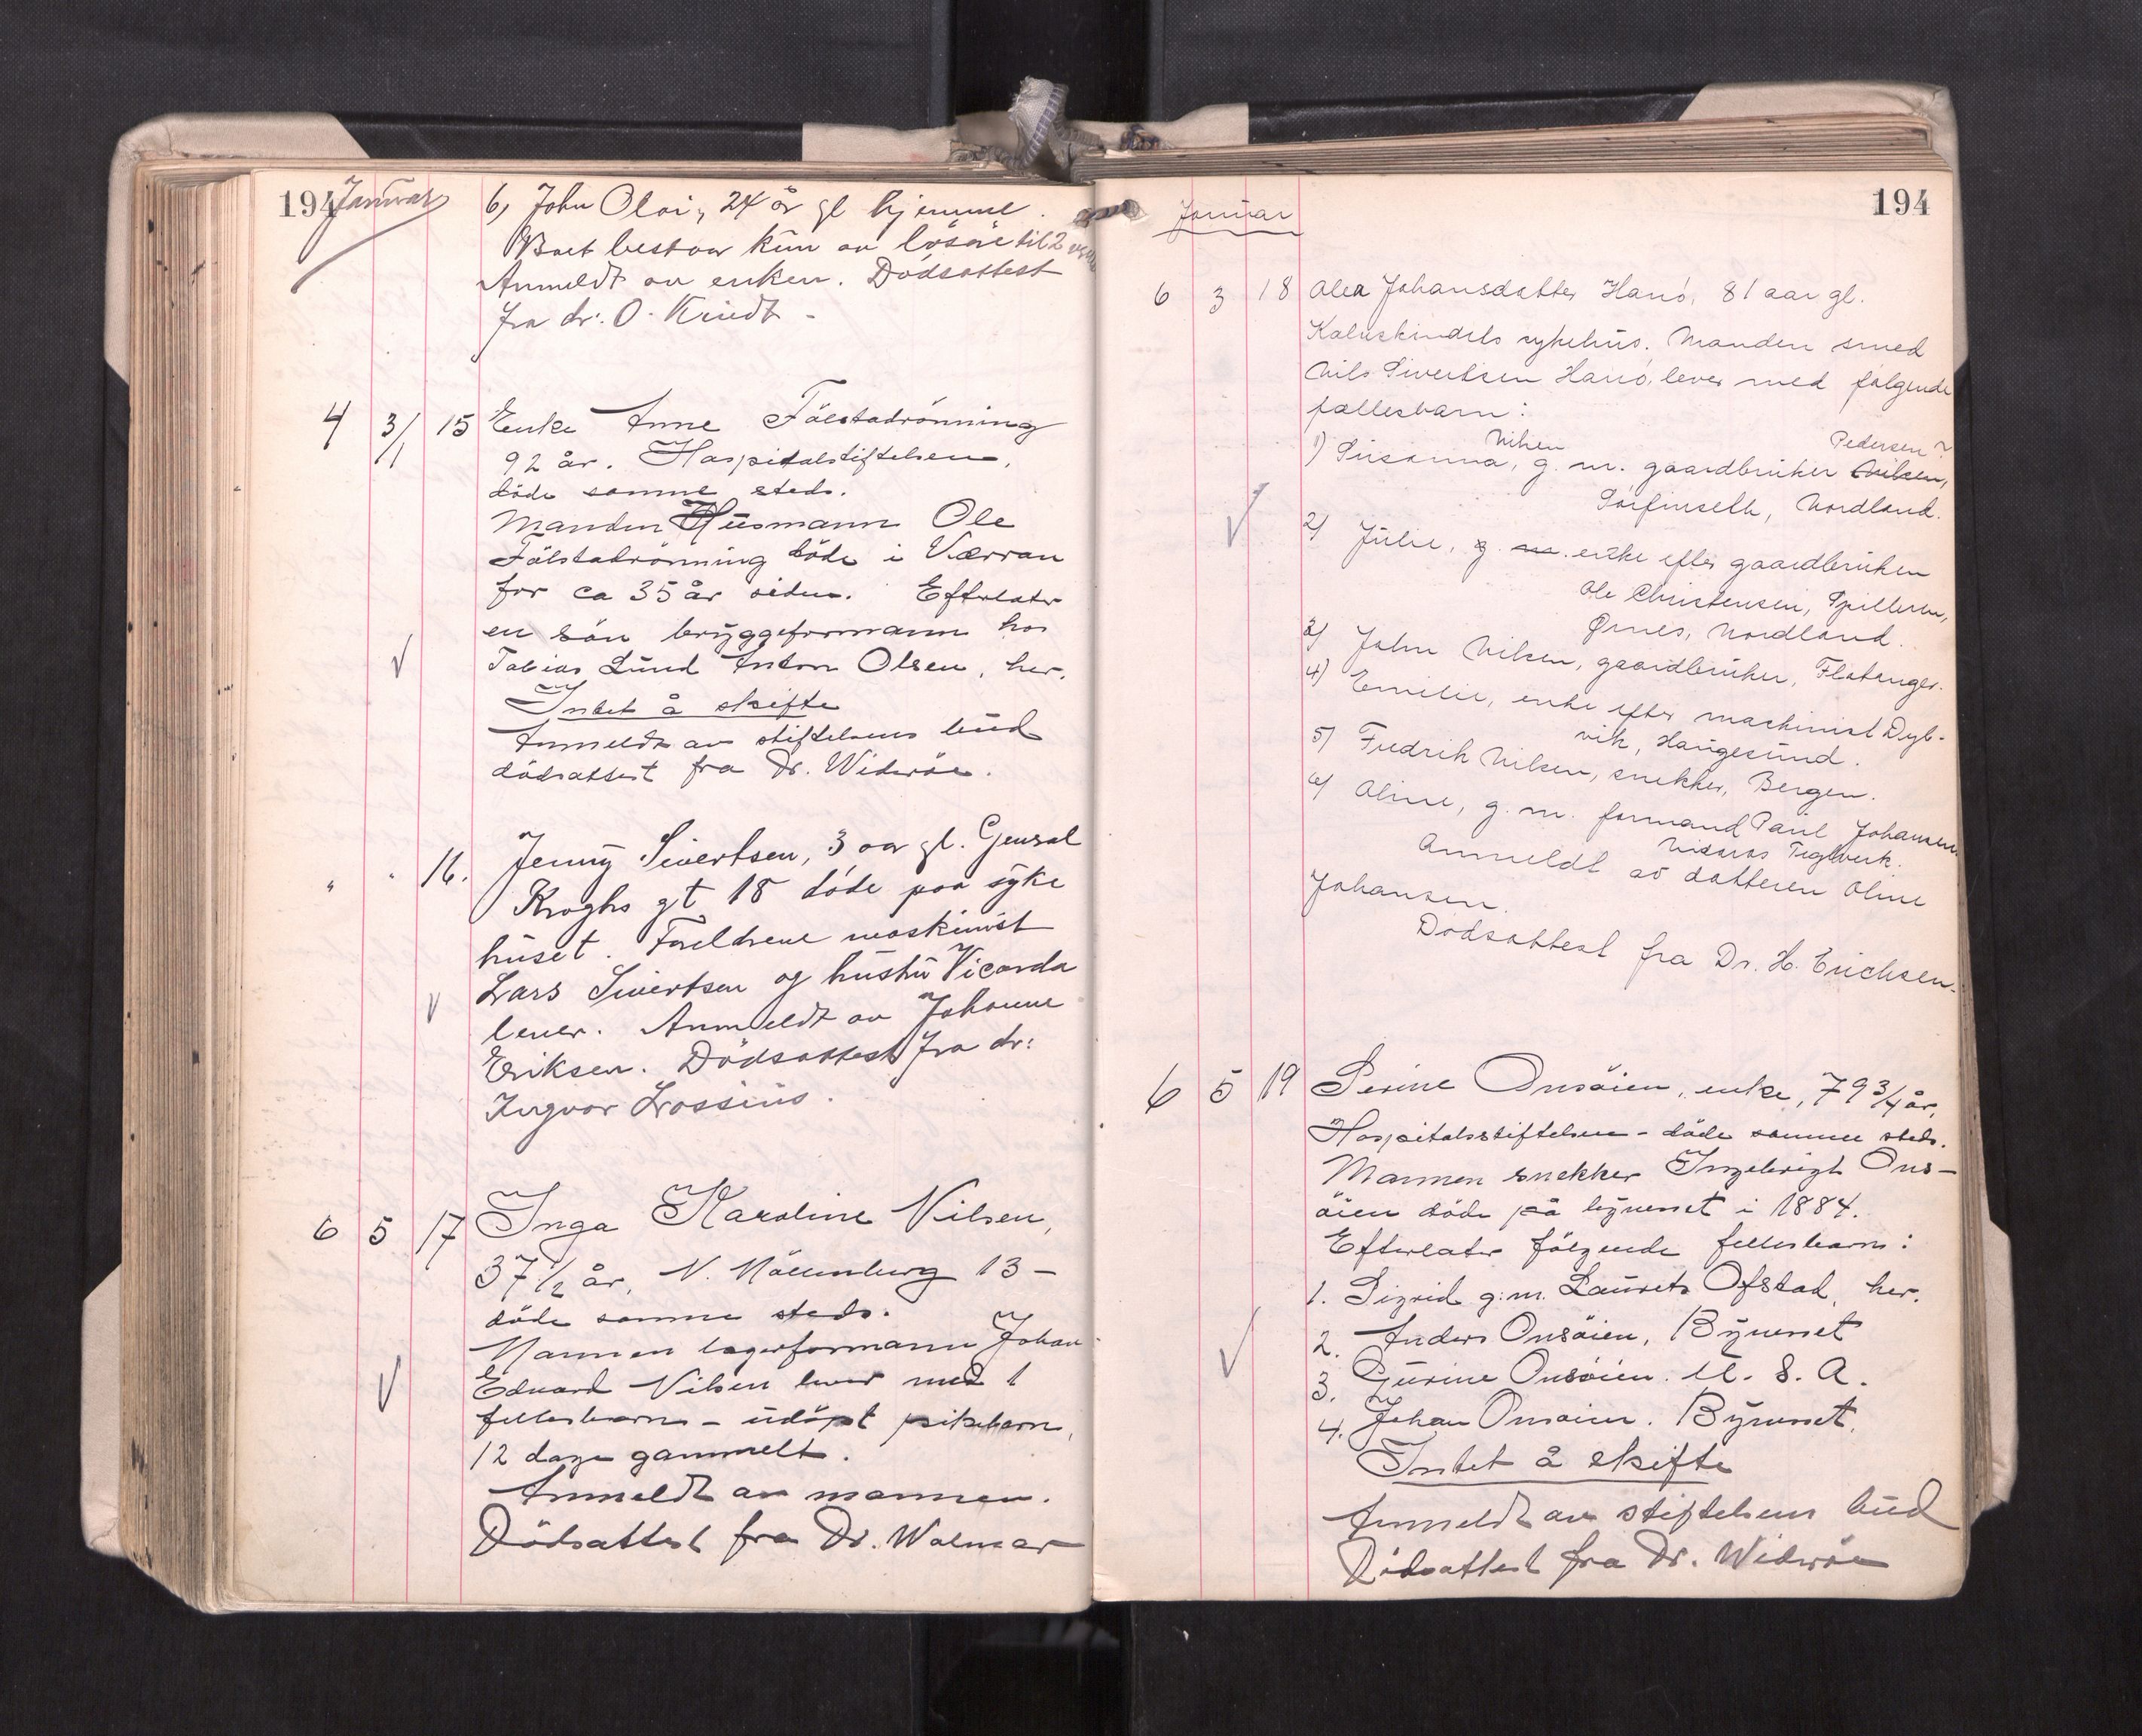 194 Januar
6, John Olai, 24 år gl hjemme.
Boet bestaar kun av løsøre til 2
Anmeldt av enken. Dødsattest
fra dr. O.
4 3/1 15 Enke Anne Fålstadrönning
92 år. Hospitalstiftelsen,
döde samme steds.
Manden Husmann Ole
Fålstadrönning döde i Værran
for ca 35 år siden. Efterlater
en sön bryggeformann hos
Tobias Lund Anton Olsen, her.
Intet å skifte
Anmeldt av stiftelsens bud
dödsattest fra Dr. Wideröe.
" " 16. Jenny Sivertsen, 3 aar gl. General
Kroghs gt 18 döde paa syke
huset. Foreldrene maskinist
Lars Sivertsen og hustru Vicarda
lever. Anmeldt av Johanne
Eriksen. Dödsattest fra dr:
Ingvar Lossius.
6 5 17 Inga Karoline Nilsen,
37 1/2 år, N. Möllenberg 13 -
döde samme steds.
Mannen lagerformann Johan
Edvard Nilsen lever med 1
fellesbarn - udöpt pikebarn,
12 dage gammelt.
Anmeldt av mannen.
Dödsattest fra Dr. Walmar
194
Januar
6 3 18 Olea Johansdatter Hanö, 81 aar gl.
Kalvskindets sykehus. Manden smed
Nils Sivertsen Hanö, lever med følgende
fællesbarn:
Nilsen Pedersen?
1) Susanna, g. m. gaardbruker Nilsen,
Sörfinsett, Nordland.
2) Julie, g. m. enke efter gaardbruker
Ole Christensen, Spilleren,
Ørnes, Nordland.
3) John Nilsen, gaardbruker, Flatanger.
4) Emilie, enke efter maskinist Dyb-
vik, Haugesund.
5) Fredrik Nilsen, snekker, Bergen.
6) Oline, g. m. formand Paul Johansen
Nidaros Teglverk.
Anmeldt av datteren Oline
Johansen.
Dødsattest fra Dr. H. Erichsen.
6 5 19 Serine Onsöien, enke, 79 3/4 år,
Hospitalsstiftelsen - döde samme steds.
Mannen snekker Ingebrigt Ons-
öien döde på bynesset i 1884.
Efterlater fölgende fellesbarn:
1. Sigrid g.m. Laurets Ofstad, her.
2. Anders Onsöien, Bynesset
3. Gurine Onsöien. U. S. A.
4. Johan Onsöien. Bynesset.
Intet å skifte
Anmeldt av stiftelsens bud
Dödsattest fra Dr. Wideröe